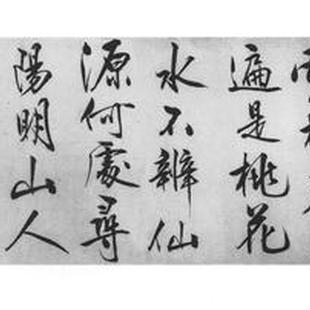 遍是桃花
水不辨仙
源何處尋
陽明山人